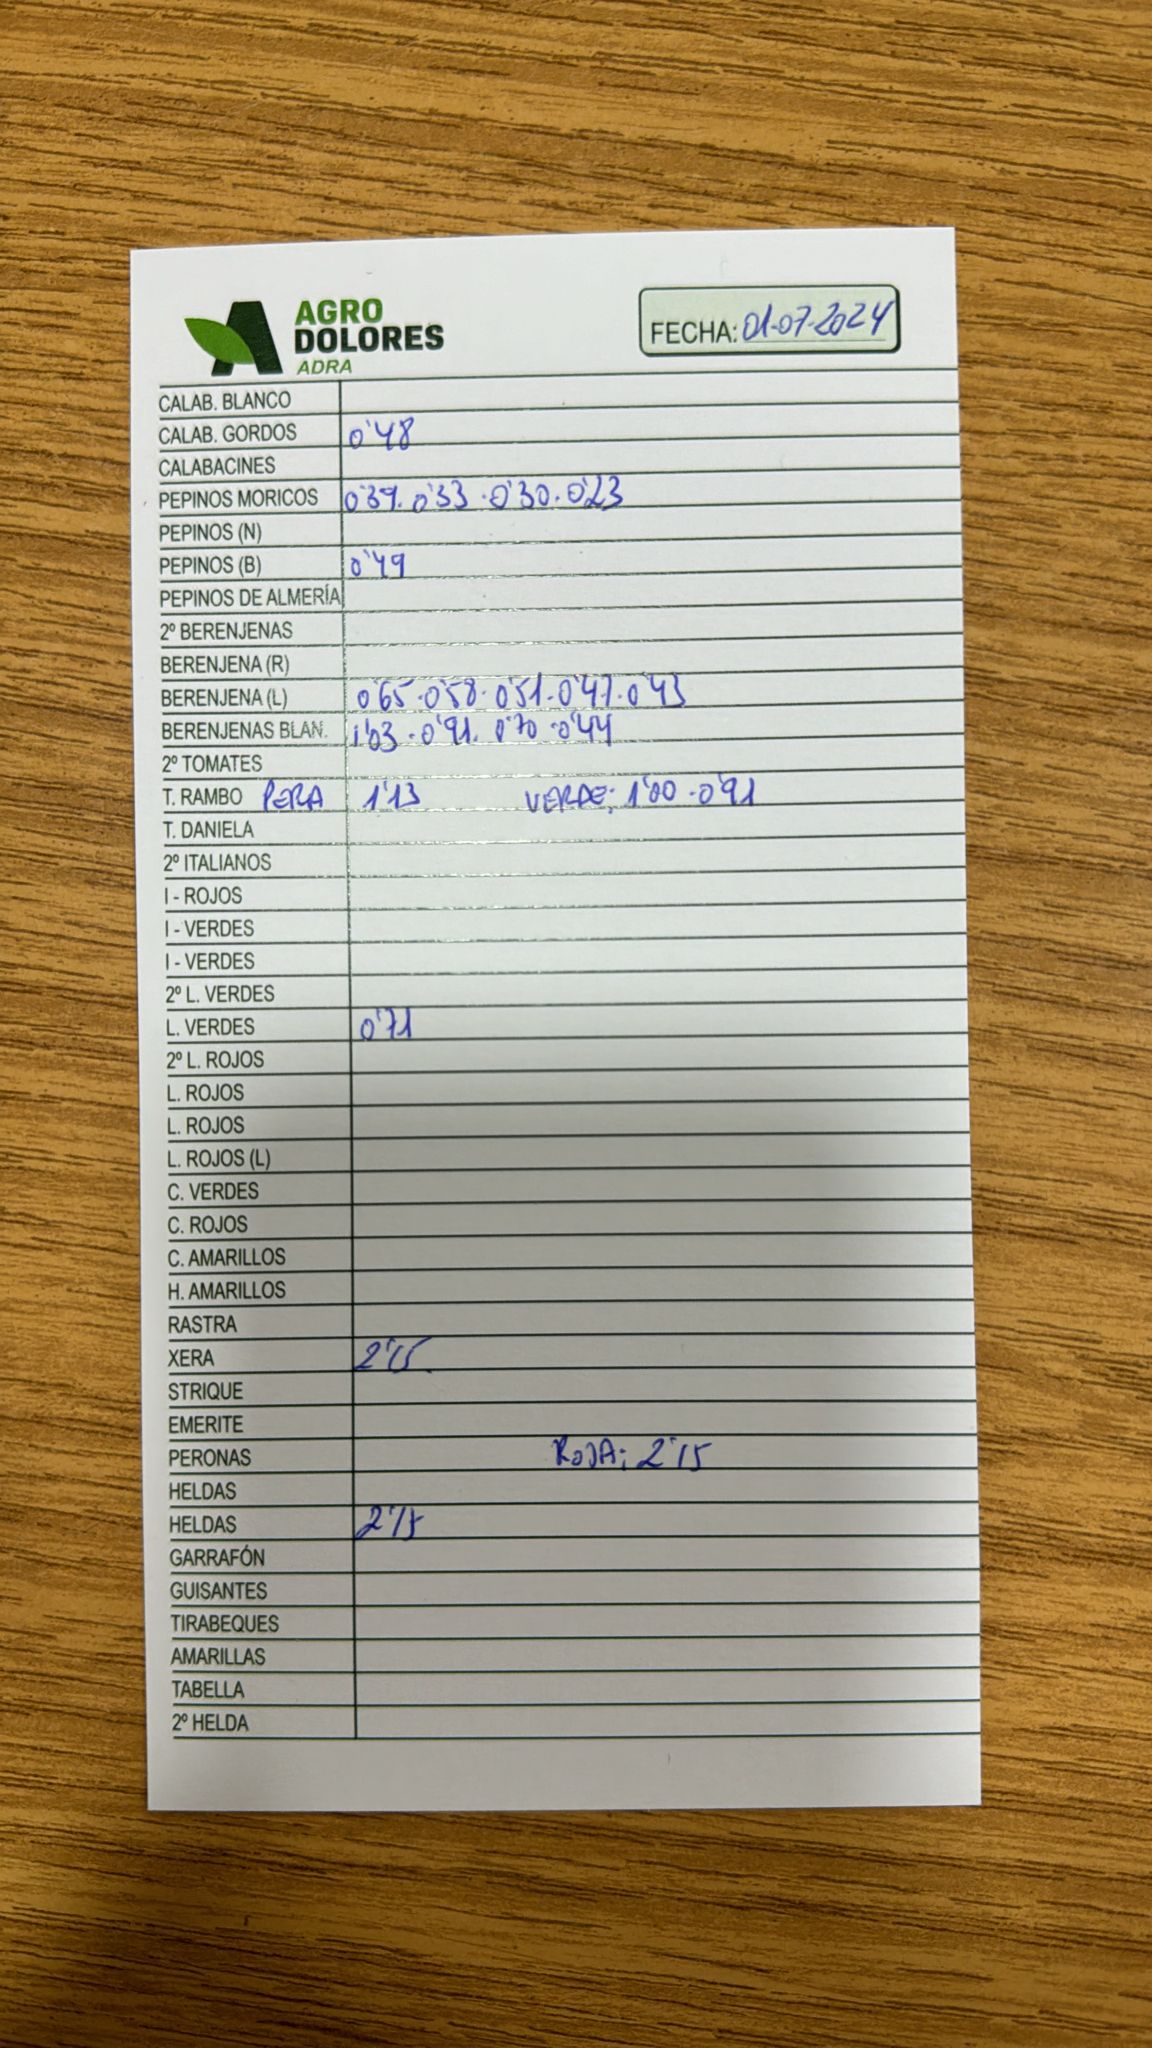 AGRO
DOLORES
ADRA
FECHA: 01-07-2024
CALAB. BLANCO
CALAB. GORDOS 0'48
CALABACINES
PEPINOS MORICOS 0'39. 0'33 . 0'30. 0'23
PEPINOS (N)
PEPINOS (B) 0'49
PEPINOS DE ALMERÍA
2º BERENJENAS
BERENJENA (R)
BERENJENA (L) 0'65 . 0'58 . 0'51 . 0'47 . 0'43
BERENJENAS BLAN. 1'03 . 0'91. 0'70 . 0'44
2º TOMATES
T. RAMBO PERA 1'13 VERDE: 1'00 . 0'91
T. DANIELA
2º ITALIANOS
I - ROJOS
I - VERDES
I - VERDES
2º L. VERDES
L. VERDES 0'71
2º L. ROJOS
L. ROJOS
L. ROJOS
L. ROJOS (L)
C. VERDES
C. ROJOS
C. AMARILLOS
H. AMARILLOS
RASTRA
XERA 2'15
STRIQUE
EMERITE
PERONAS ROJA: 2'15
HELDAS
HELDAS 2'15
GARRAFÓN
GUISANTES
TIRABEQUES
AMARILLAS
TABELLA
2º HELDA